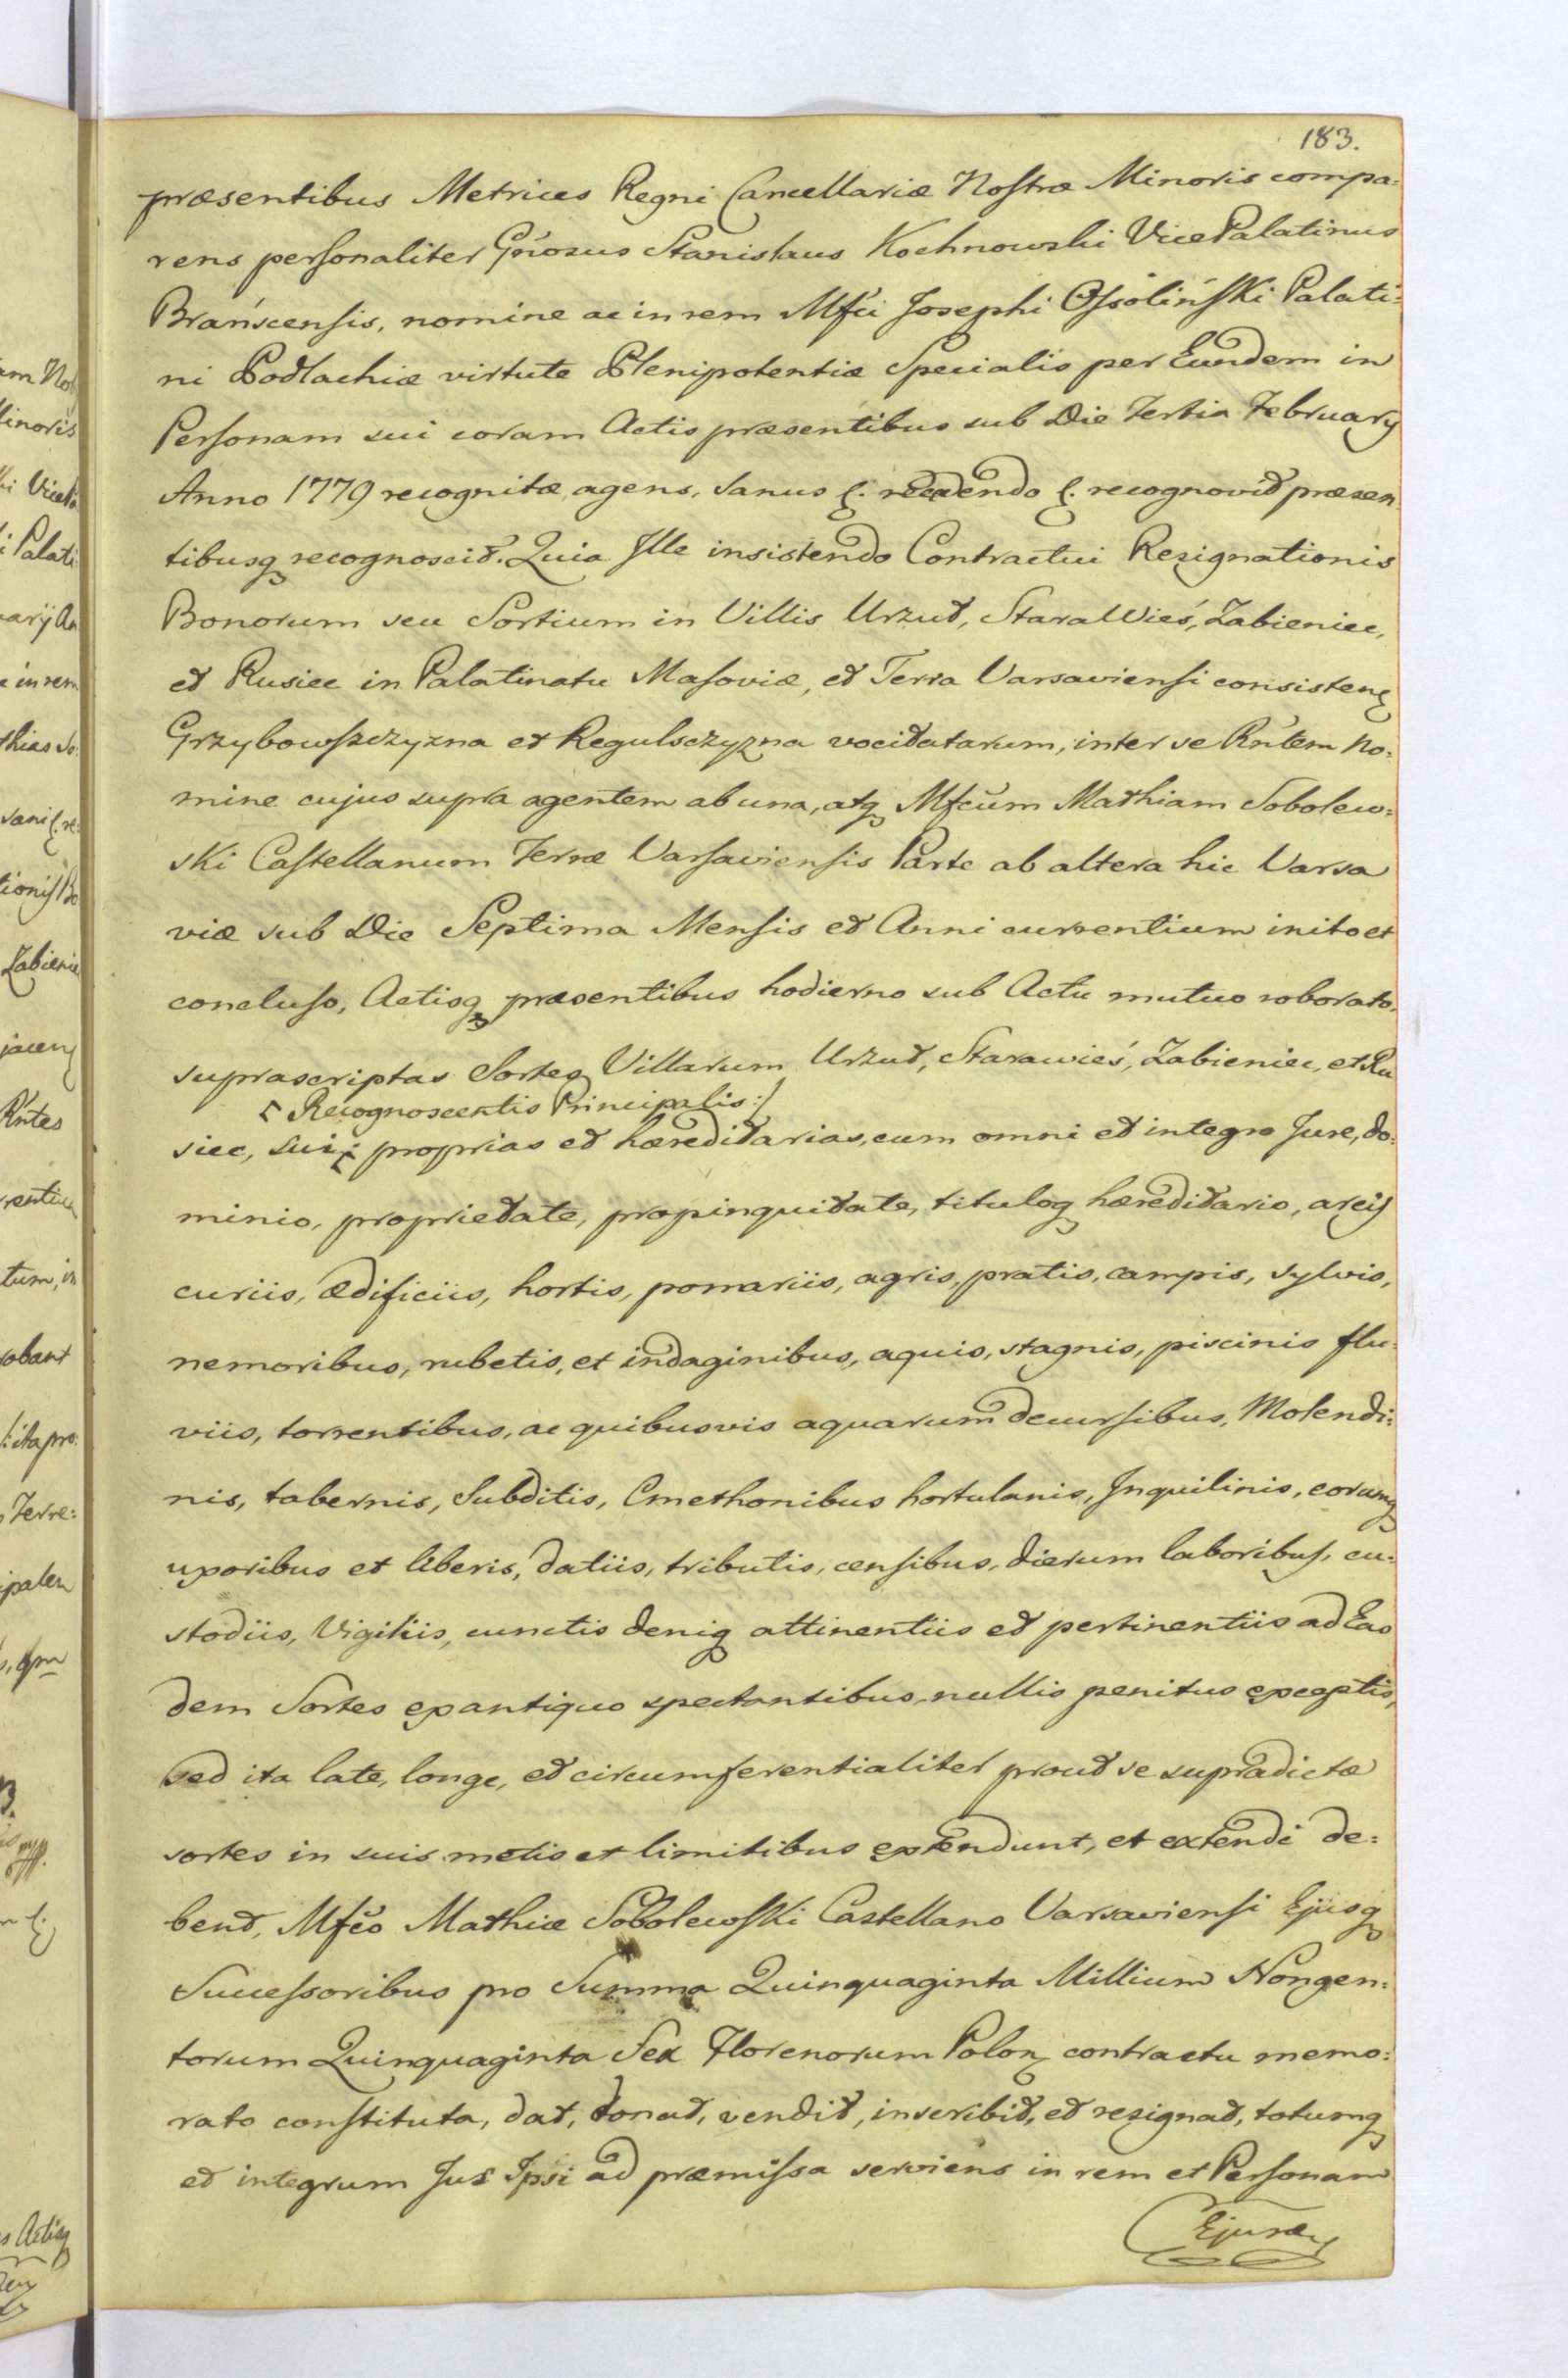 183.
præsentibus Metrices Regni Cancellariæ Nostræ Minoris compa=
rens personaliter Gnosus Stanislaus Kochnowski Vice Palatinus
Brańscensis, nomine ac in rem Mfci Josephi Ossoliński Palati=
ni Podlachiæ virtute Plenipotentiæ Specialis per Eundem in
Personam sui coram Actis præsentibus sub Die Tertia Februarij
Anno 1779 recognitæ, agens, Sanus &. recedendo &. recognovit præsen
tibusq recognoscit. Quia Ille insistendo Contractui Resignationis
Bonorum seu Sortium in Villis Urzut, Stara Wieś, Zabieniec,
et Rusiec in Palatinatu Masoviæ, et Terra Varsaviensi consisten
Grzybowszczyzna et Regulsczyzna vocitatarum, inter se Rntem no=
mine cujus supra agentem ab una, atq Mfcum Mathiam Sobolew=
ski Castellanum Terræ Varsaviensis Parte ab altera hic Varsa
viæ sub Die Septima Mensis et Anni currentium inito et
concluso, Actisq præsentibus hodierno sub Actu mutuo roborato,
suprascriptas Sortes Villarum Urzut, Starawieś, Zabieniec, et Ru
Recognoscentis Principalis :/
siec, sui proprias et hæreditarias, cum omni et integro Jure, do=
minio, proprietate, propinquitate, tituloq hæreditario, areis
curiis, ædificiis, hortis, pomariis, agris, pratis, campis, sylvis,
nemoribus, rubetis, et indaginibus, aquis, stagnis, piscinis flu=
viis, torrentibus, ac quibusvis aquarum decursibus, Molendi=
nis, tabernis, Subditis, Cmethonibus hortulanis, Inquilinis, eorumq
uxoribus et liberis, datiis, tributis, censibus, dierum laboribus, cu=
stodiis, Vigiliis, cunctis deniq attinentiis et pertinentiis ad Eas
dem Sortes ex antiquo spectantibus, nullis penitus exceptis,
sed ita late, longe, et circumferentialiter prout se supradictæ
sortes in suis metis et limitibus extendunt, et extendi de=
bent, Mfco Mathiæ Sobolewski Castellano Varsaviensi Ejusq
Successoribus pro Summa Quinquaginta Millium Nongen=
torum Quinquaginta Sex Florenorum Polon contractu memo=
rato constituta, dat, donat, vendit, inscribit, et resignat, totumq
et integrum Jus Ipsi ad præmissa serviens in rem et Personam